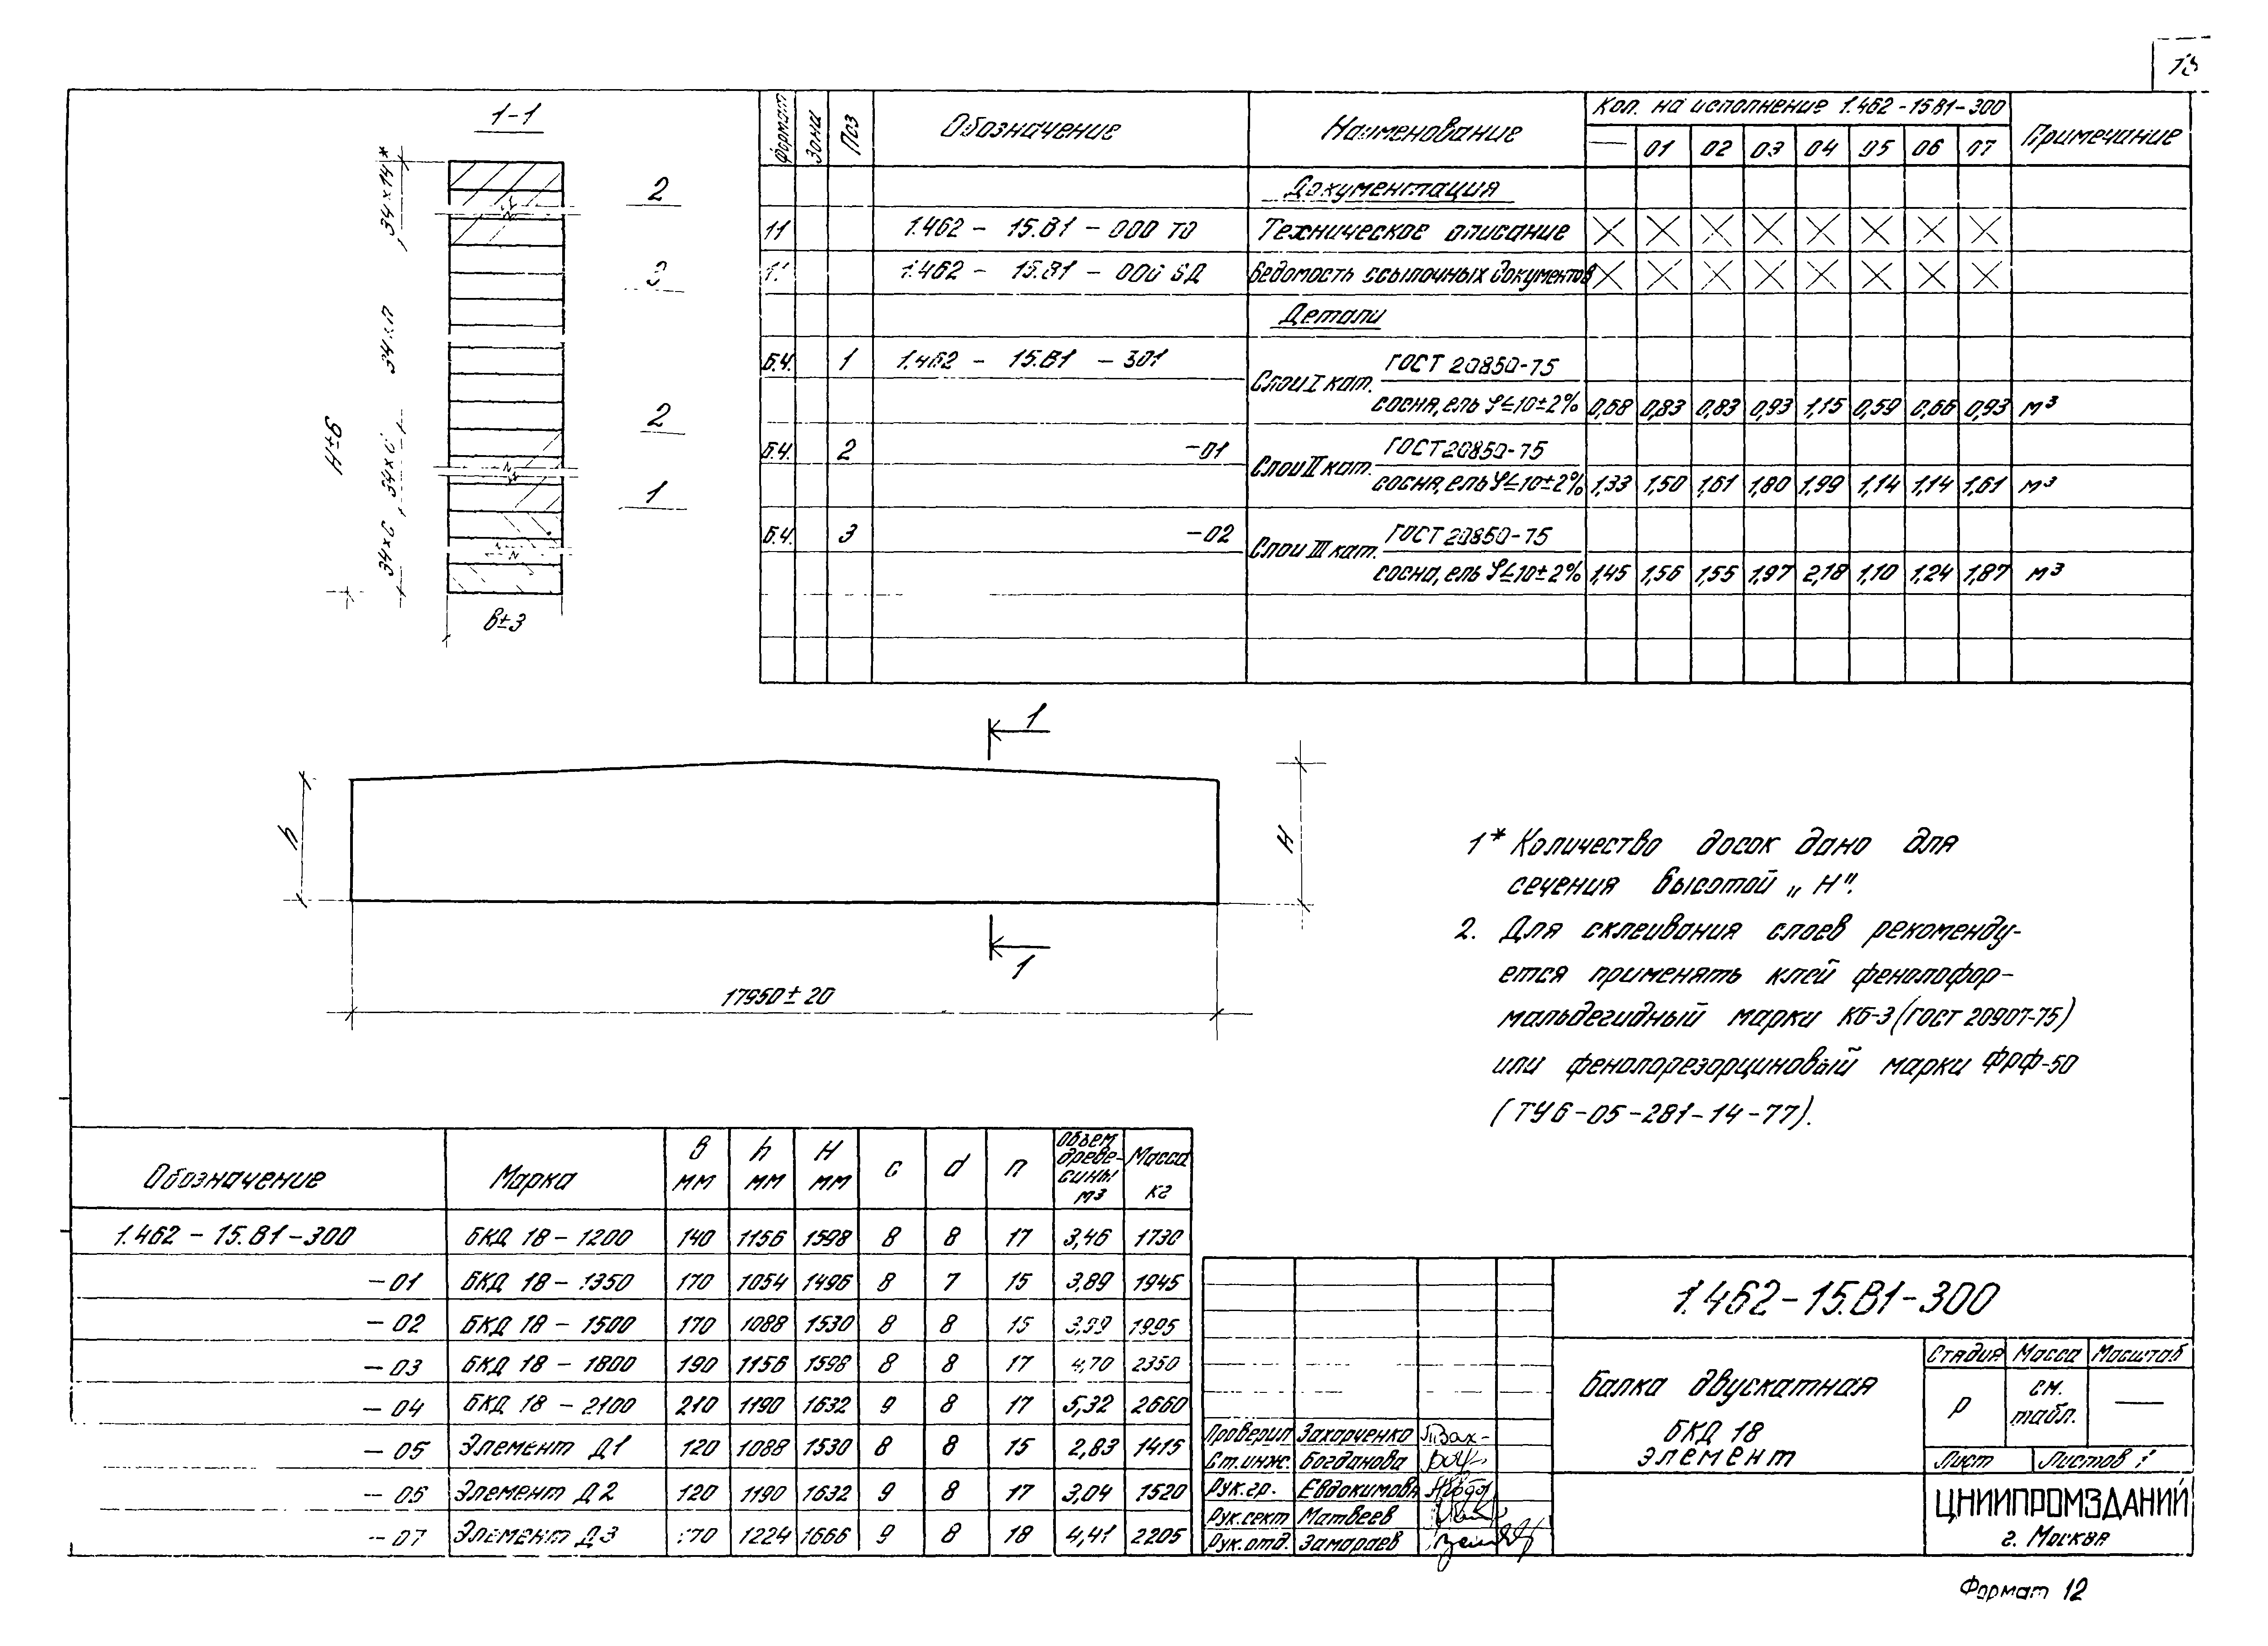 1-1
34×14*
2
3
34×п
2
Н±6
1
34×С
в±3
Формат
Зона
Поз
Обозначение
Наименование
Кол. на исполнение 1.462-15В1-300
Примечание
— 01 02 03 04 05 06 07
Документация
11 1.462 - 15.В1 - 000 ТО Техническое описание
1.462 - 15.В1 - Ведомость ссылочных документов
Детали
Б.Ч. 1 1.462 - 15.В1 - 301 Слои I кат. ГОСТ 20850-75
сосна, ель 10±2% 0,68 0,83 0,83 0,93 1,15 0,59 0,66 0,93 м³
Б.Ч. 2 -01 Слои II кат. ГОСТ 20850-75
сосна, ель 10±2% 1,33 1,50 1,61 1,80 1,99 1,14 1,14 1,61 м³
Б.Ч. 3 -02 Слои III кат. ГОСТ 20850-75
сосна, ель 10±2% 1,45 1,56 1,55 1,97 2,18 1,10 1,24 1,87 м³
1
h
Н
1
17950±20
1* Количество досок дано для
сечения высотой „Н".
2. Для склеивания слоев рекоменду-
ется применять клей фенолофор-
мальдегидный марки КБ-3 (ГОСТ 20907-75)
или фенолорезорциновый марки ФРФ-50
(ТУ6-05-281-14-77).
Обозначение Марка в мм h мм Н мм с d п Объем древе-сины м³ Масса кг
1.462-15.В1-300 БКД 18-1200 140 1156 1598 8 8 17 3,46 1730
-01 БКД 18-1350 170 1054 1496 8 7 15 3,89 1945
-02 БКД 18-1500 170 1088 1530 8 8 15 3,99 1995
-03 БКД 18-1800 190 1156 1598 8 8 17 4,70 2350
-04 БКД 18-2100 210 1190 1632 9 8 17 5,32 2660
-05 Элемент Д1 120 1088 1530 8 8 15 2,83 1415
-06 Элемент Д2 120 1190 1632 9 8 17 3,04 1520
-07 Элемент Д3 170 1224 1666 9 8 18 4,41 2205
1.462-15.В1-300
Балка двускатная
БКД 18
элемент
Стадия Масса Масштаб
Р см. табл. —
Лист Листов 1
Проверил Захарченко
Ст.инж. Богданова
Рук.гр. Евдокимова
Рук.сект Матвеев
Рук.отд. Замараев
ЦНИИПРОМЗДАНИЙ
г. Москва
Формат 12